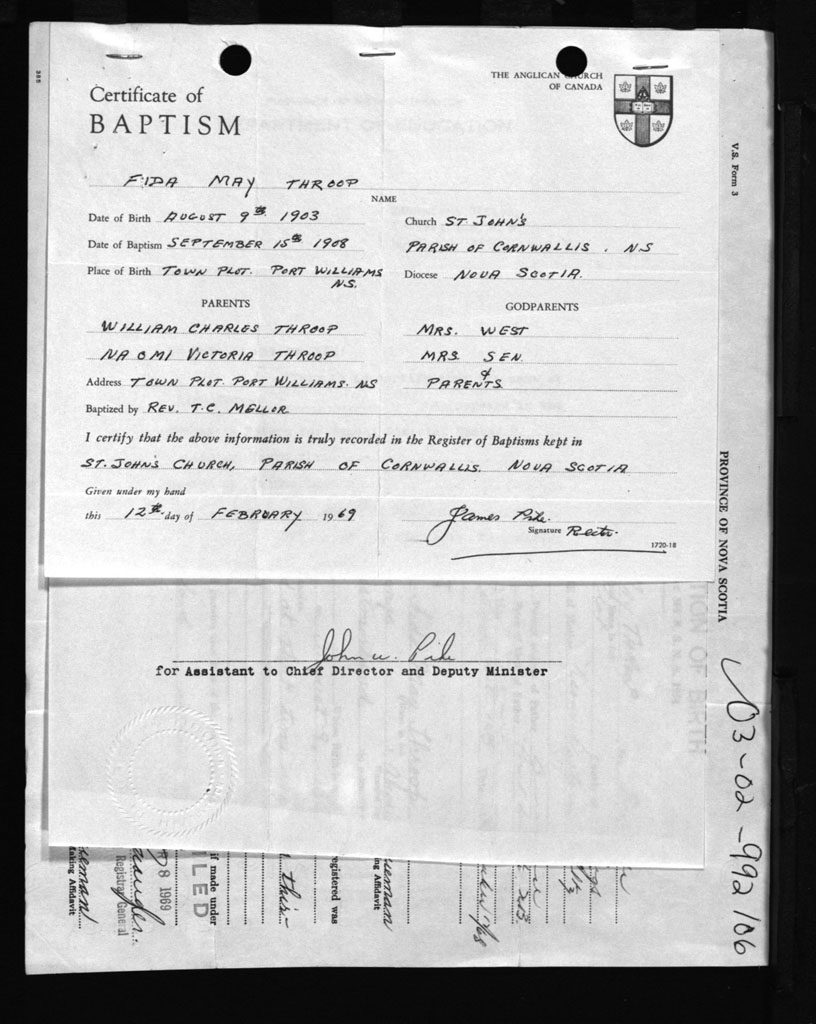 285
Certificate of
BAPTISM
THE ANGLICAN CHURCH
OF CANADA
FIDA MAY THROOP
NAME
Date of Birth AUGUST 9th 1903
Church ST JOHN'S
Date of Baptism SEPTEMBER 15th 1908
PARISH OF CORNWALLIS. N.S
Place of Birth TOWN PLOT. PORT WILLIAMS
N.S.
Diocese NOVA SCOTIA.
PARENTS
GODPARENTS
WILLIAM CHARLES THROOP
MRS. WEST
NAOMI VICTORIA THROOP
MRS. SEN.
&
Address TOWN PLOT PORT WILLIAMS. NS
PARENTS
Baptized by REV. T.C. MELLOR
I certify that the above information is truly recorded in the Register of Baptisms kept in
ST. JOHN'S CHURCH, PARISH OF CORNWALLIS. NOVA SCOTIA
Given under my hand
this 12th day of FEBRUARY 1969
James Pike.
Signature Rector.
1720-18
John W. Pike
for Assistant to Chief Director and Deputy Minister
V.S. Form 3
PROVINCE OF NOVA SCOTIA
TION OF BIRTH
03-02-992106
king Affidavit
Registrar General
8 1969
if made under
ILED
this
egistered was
ng Affidavit